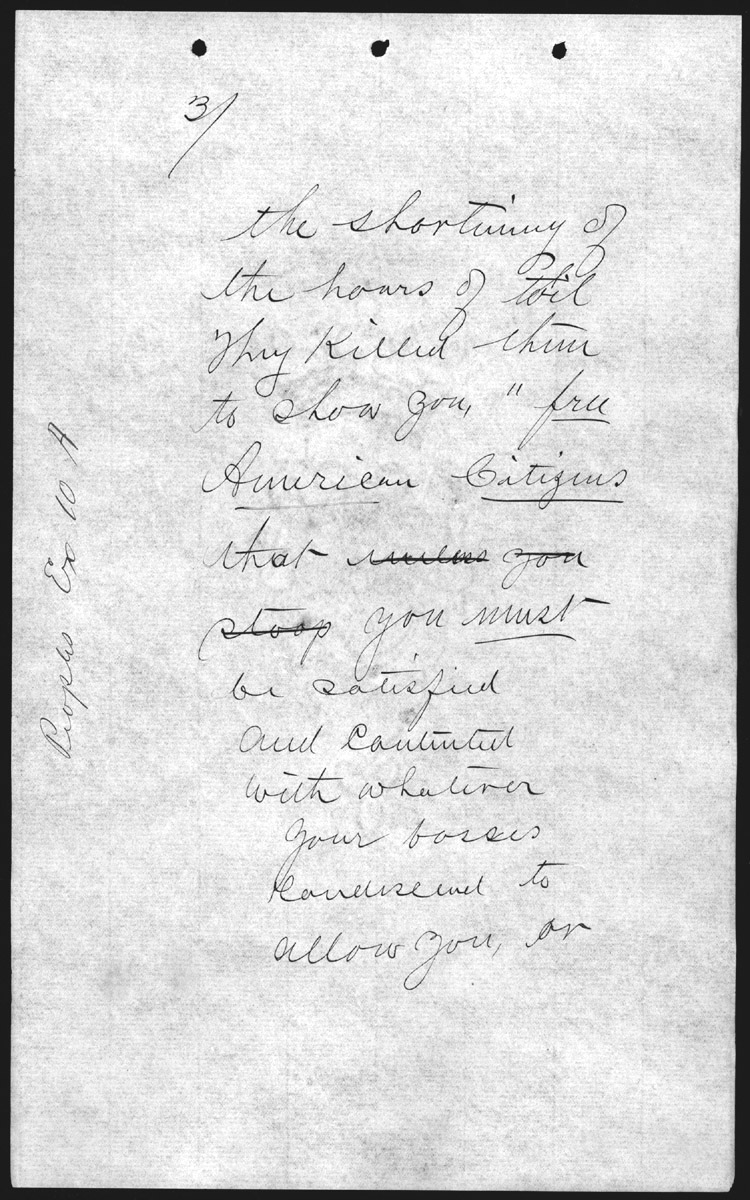 3/
the shortining of
the hours of toil
They Killed them
to show you, " free
American Citizens
that unless you
stoop you must
be satisfied
and contented
with whatever
your bosses
condescend to
allow you, or
Peoples Ex 10 A